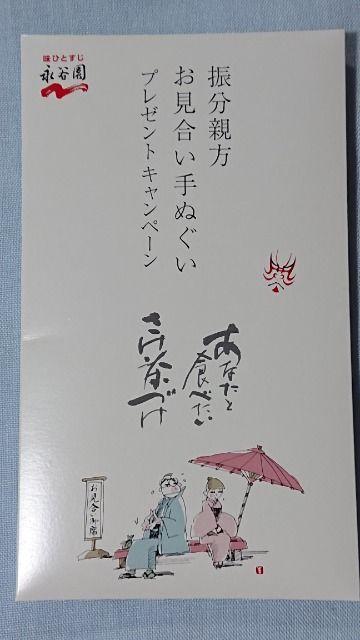 味ひとすじ
永谷園
振分親方
お見合い手ぬぐい
プレゼントキャンペーン
あなたと
食べたい
さけ茶づけ
お見合い御席